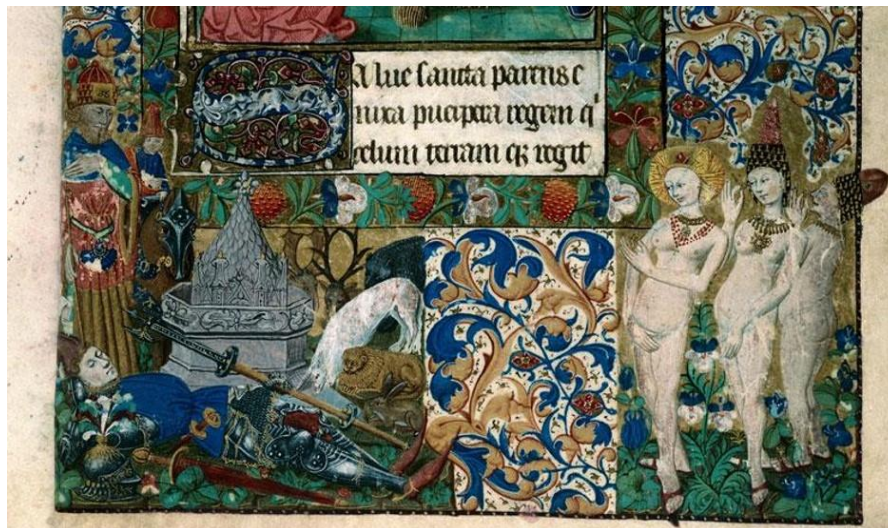 Salue sancta parens e
nixa puerpera regem q'
celum terram qꝫ regit